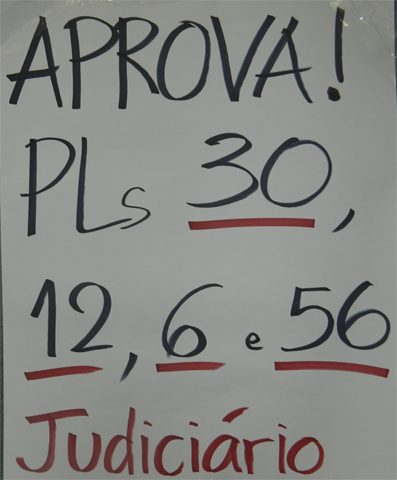 APROVA!
PLs 30,
12, 6 e 56
Judiciário